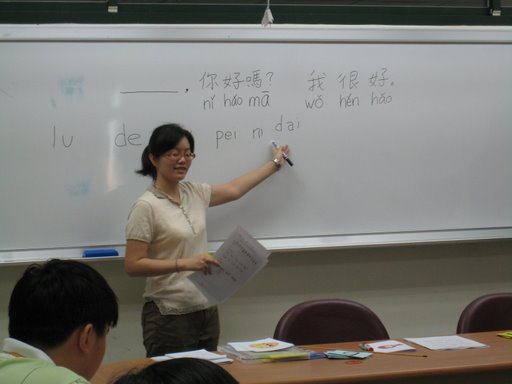 ______ . 你好嗎? 我很好。
nǐ hǎo mā wǒ hěn hǎo
lu de pei ni dai